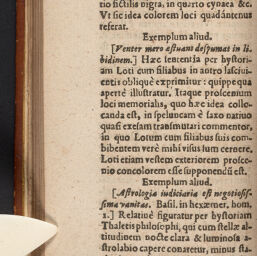 tio fictilis nigra, in quarto cynaea &c.
Vt sic idea colorem loci quadantenus
referat.
Exemplum aliud.
[Venter mero æstuans despumat in li-
bidinem.] Hæc sententia per hystori-
am Loti cum filiabus in antro lasciui-
entis obliquè exprimitur: quippe qua
apertè illustratur. Itaque proscenium
loci memorialis, quo hæc idea collo-
canda est, in speluncam è saxo natiuo
quasi exesam transmutari commentor,
in quo Lotum cum filiabus suis com-
bibentem verè mihi visus sum cernere.
Loti etiam vestem exteriorem prosce-
nio concolorem esse supponendũ est.
Exemplum aliud.
[Astrologia iudiciaria est negotiosis-
sima vanitas. Basil. in hexæmer, hom.
1.] Relatiuè figuratur per hystoriam
Thaletis philosophi, qui cum stellæ al-
titudinem nocte clara & luminosa a-
strolabio capere conaretur, minus sta-